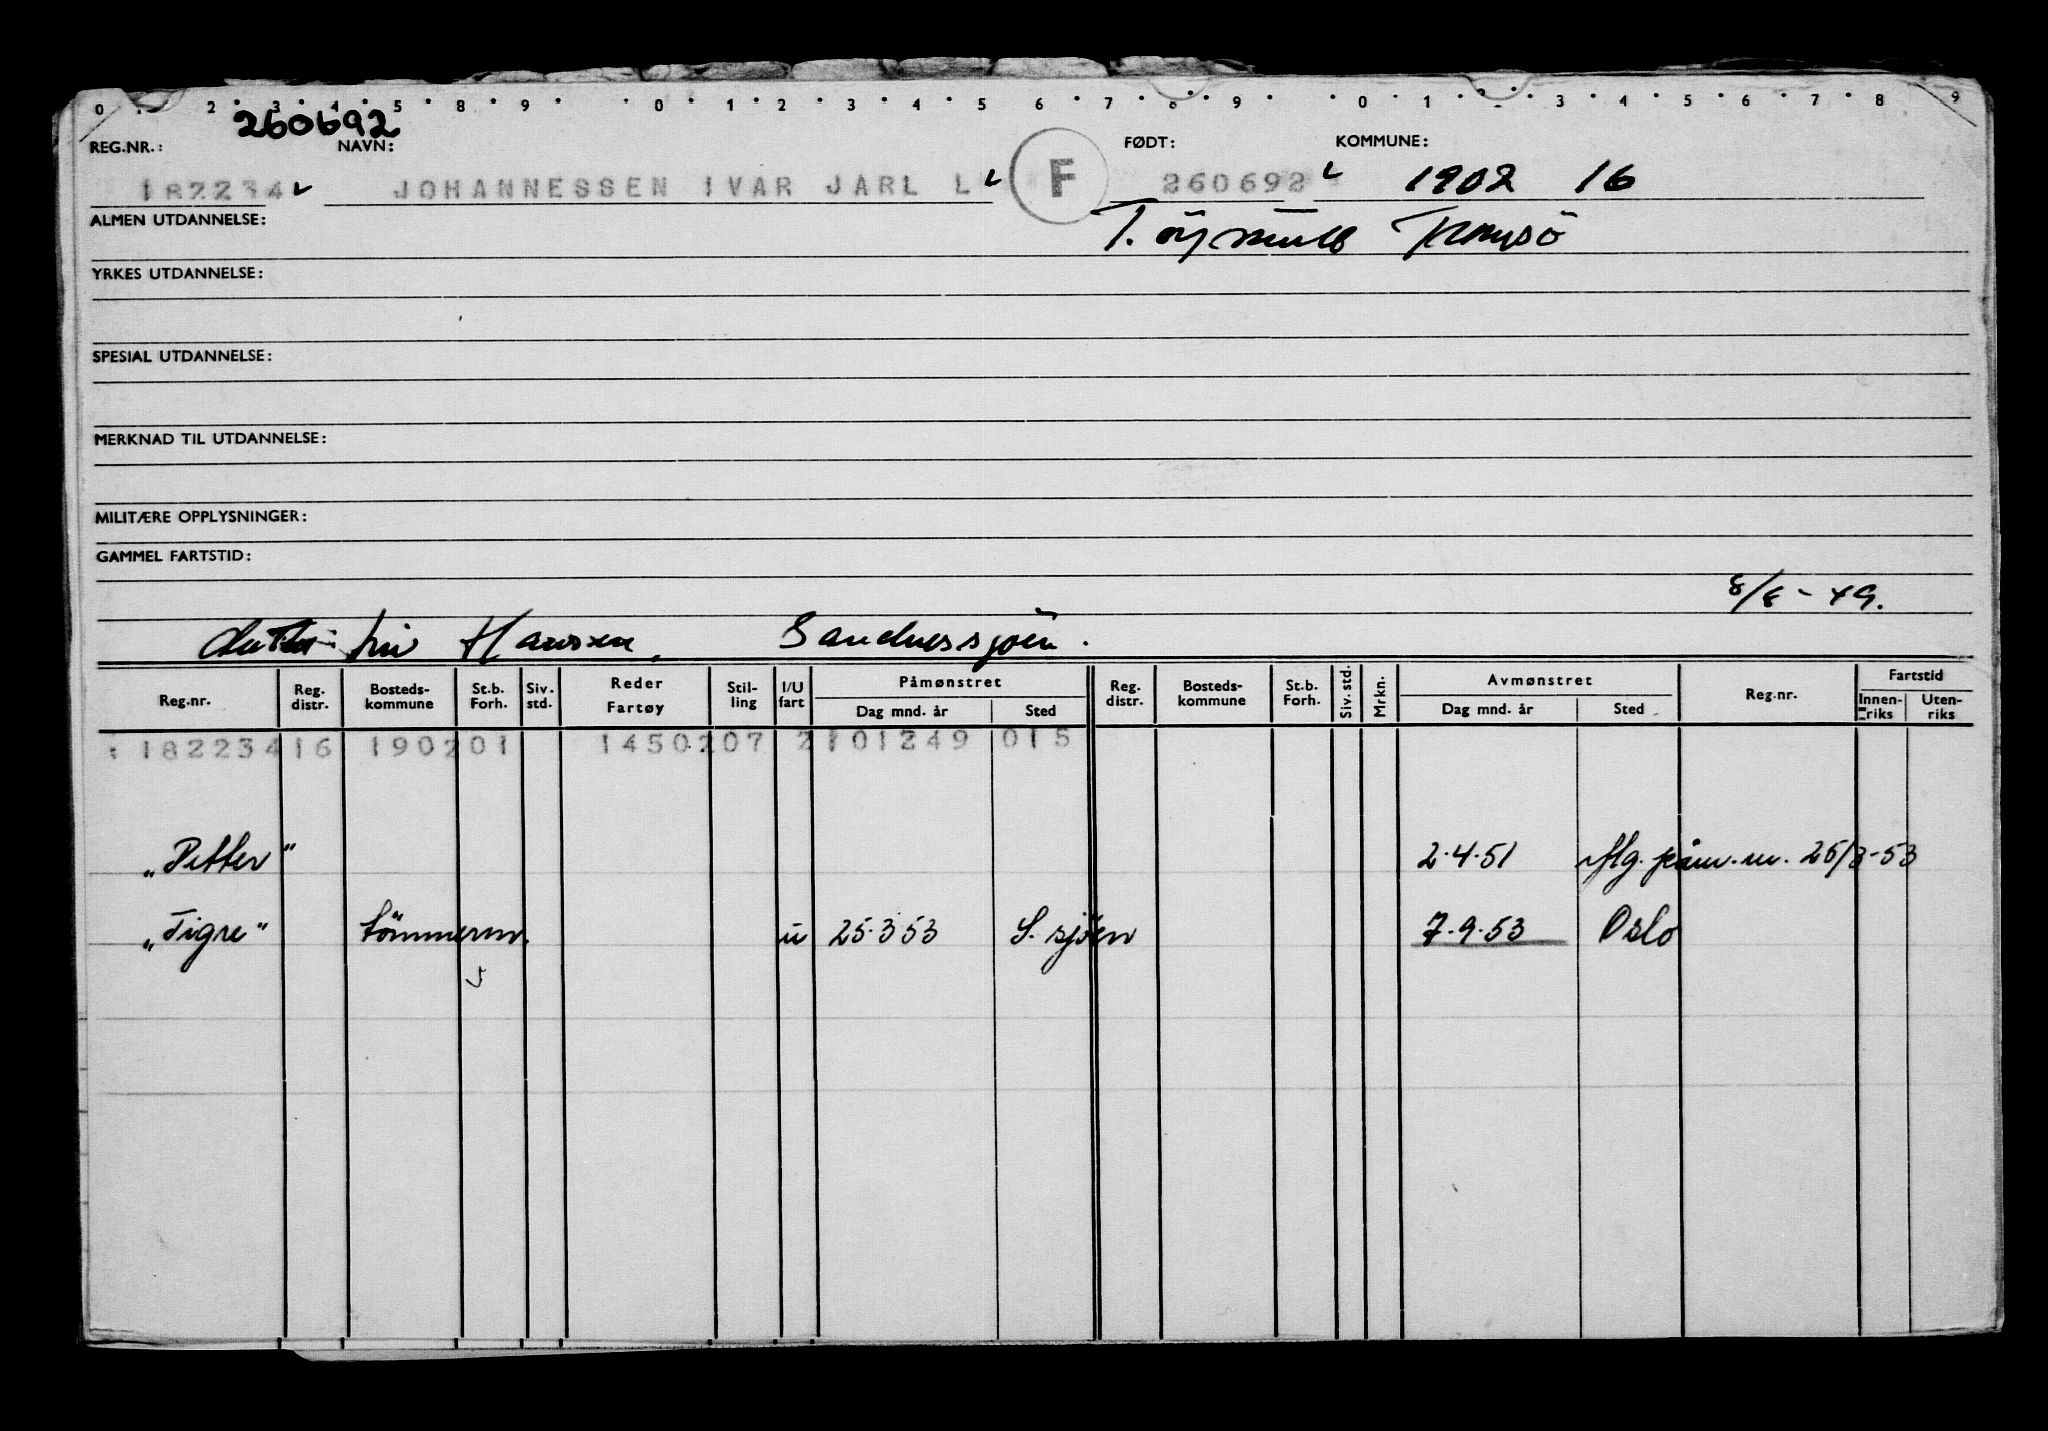 0 . 2 . 3 . 4 . 5 . 8 . 9 . . 0 . 1 . 2 . 3 . 4 . 5 6 . 7 . 8 . 9 . . 0 . 1 . 2 . 3 . 4 . 5 . 6 . 7 . 8 9
260692
REG.NR.: NAVN: FØDT: KOMMUNE:
182234 JOHANNESSEN IVAR JARL L F 260692 1902 16
ALMEN UTDANNELSE: Tromsö
YRKES UTDANNELSE:
SPESIAL UTDANNELSE:
MERKNAD TIL UTDANNELSE:
MILITÆRE OPPLYSNINGER:
GAMMEL FARTSTID:
8/8-49.
Hansen, Sandnessjöen.
Reg.nr. Reg. distr. Bosteds-kommune St.b. Forh. Siv. std. Reder Fartøy Stil-ling I/U fart Påmønstret Dag mnd. år Sted Reg. distr. Bosteds-kommune St.b. Forh. Siv. std. Mrkn. Avmønstret Dag mnd. år Sted Reg.nr. Fartstid Innen-riks Uten-riks
182234 16 1902 01 1450207 2 101249 015
"Petter" 2.4.51 påm.m. 25/3-53
"Tigre" tömmerm. u 25.3 53 S. sjöen 7.9.53 Oslo